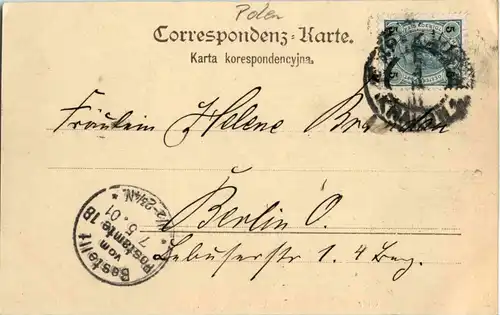 Polen
Correspondenz-Karte.
Karta korespondencyjna.
5
Fräulein Helene
Berlin O.
Lebuserstr. 1. 4 Trg.
Bestellt
vom
Postamte 18
7. 5. 01
1/2-2 3/4 N.